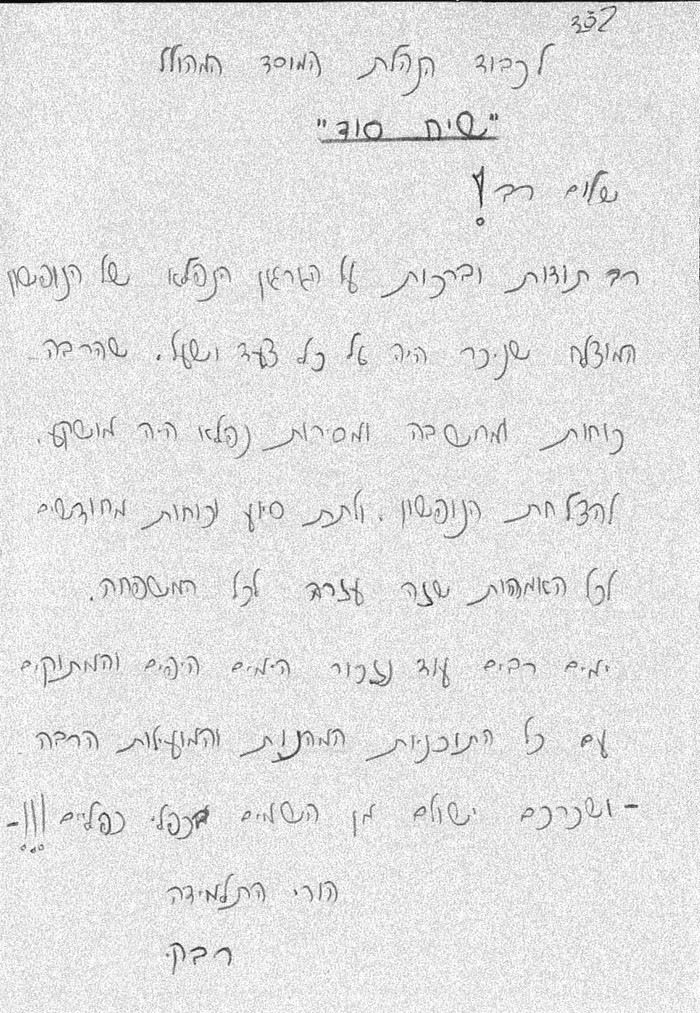 בס"ד
לכבוד הנהלת המוסד המהולל
"שיח סוד"
שלום רב!
רב תודות וברכות על הארגון הנפלא של הנופשון
המוצלח שניכר היה על כל צעד ושעל. שהרבה
כוחות ומחשבה ומסירות נפלאה היה מושקע.
להצלחת הנופשון. ולתת סיוע וכוחות מחודשים
לכל האמהות שזה עזרה לכל המשפחה.
ימים רבים עוד נזכור הימים היפים והמתוקים
עם כל התוכניות המהנות והמועילות הרבה
- ושכרכם ישולם מן השמים בכפלי כפליים!!! -
הורי התלמידה
רבקי